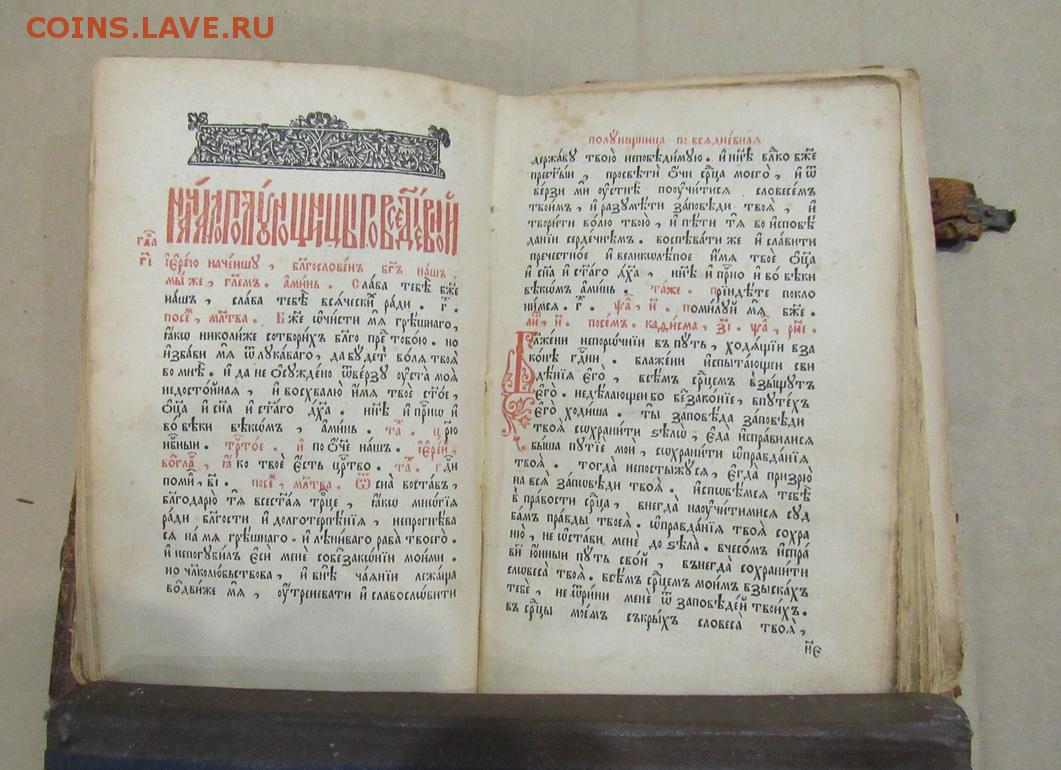 COINS.LAVE.RU
НАЧАЛО ПОЛУНОЩНИЦЫ ПОВСЕДНЕВНОЙ
гла
гі
Іерею наченшу, блгословенъ бгъ нашъ
мы же, глемъ. аминь. Слава тебѣ бже
нашъ, слава тебѣ всяческих ради. г҃.
посе, млтва. Бже ѡчисти мѧ грѣшнаго,
ꙗкѡ николиже сотворихъ блго пре тобою. но
избави мѧ ѿ лукаваго, да будетъ волѧ твоѧ
во мнѣ. и да не ѡсуждено ѿверзу уста моѧ
недостойнаѧ, и восхвалю имѧ твое стое,
оца и сна и стаго дха. нне и прно и
во вѣки вѣкомъ, аминь. та. црю
нбныи. тртое. и по оче нашъ. іерей,
возгла, ꙗко твое есть цртво. та. гди
поми, ві. посе, млтва. Ѿ сна воставъ,
благодарю тѧ всестаѧ трце, ꙗкѡ многіѧ
ради блгости и долготерпѣніѧ, непрогнѣва
сѧ на мѧ грѣшнаго. и лѣниваго раба твоего.
и непогубилъ еси мене собеззаконіи моими.
но члколюбьствова, и внѣ чаѧніи лежаща
воздвиже мѧ, оутреневати и славословити
полунощница повсядневная
державу твою непобѣдимую. и ннѣ влко бже
престыи, просвѣти очи срца моего, и ѿ
верзи ми оустнѣ поучитисѧ словесемъ
твоимъ, и разумѣти заповѣди твоѧ, и
творити волю твою, и пѣти тѧ во исповѣ
даніи сердечнѣмъ. воспѣвати же и славити
пречестное и великолѣпое имѧ твое оца
и сна и стаго дха, ннѣ и прно и во вѣки
вѣкомъ аминь. таже. прiидете покло
нимсѧ. г҃. ѱа, н҃. помилуй мѧ бже.
посемъ. каѳисма, зі. ѱа, риі.
Блжени непорочніи въ путь, ходѧщіи вза
конѣ гдни. блажени испытающеи сви
дѣніѧ его, всѣмъ срцемъ взыщутъ
его. недѣлающеи бо беззаконіе, впутѣхъ
его ходиша. ты заповѣда заповѣди
твоѧ сохранити ѕѣлѡ, еда исправилисѧ
быша путіе мои, сохранити ѡправданіѧ
твоѧ. тогда непостыжусѧ, егда призрю
на всѧ заповѣди твоѧ. исповѣмсѧ тебѣ
в правости срца, внегда научитимисѧ суд
бамъ правды твоеѧ. ѡправданіѧ твоѧ сохра
ню, не ѡстави мене до ѕѣла. вчесомъ испра
витъ юнныи путь свой, вънегда сохранити
словеса твоѧ. всѣмъ срцемъ моимъ взыскахъ
тебе, не ѿрини мене ѿ заповѣдей твоихъ.
въ срцы моемъ съкрыхъ словеса твоѧ,